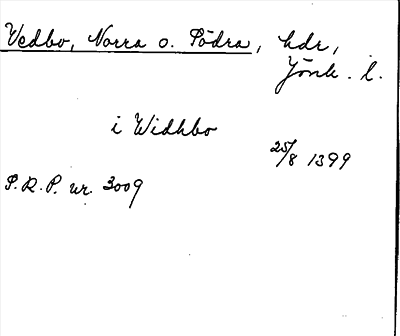 Vedbo, Norra o. Södra, hdr,
Jönk. l.
i Widhbo
25/8 1399
P.R.P. nr. 3009